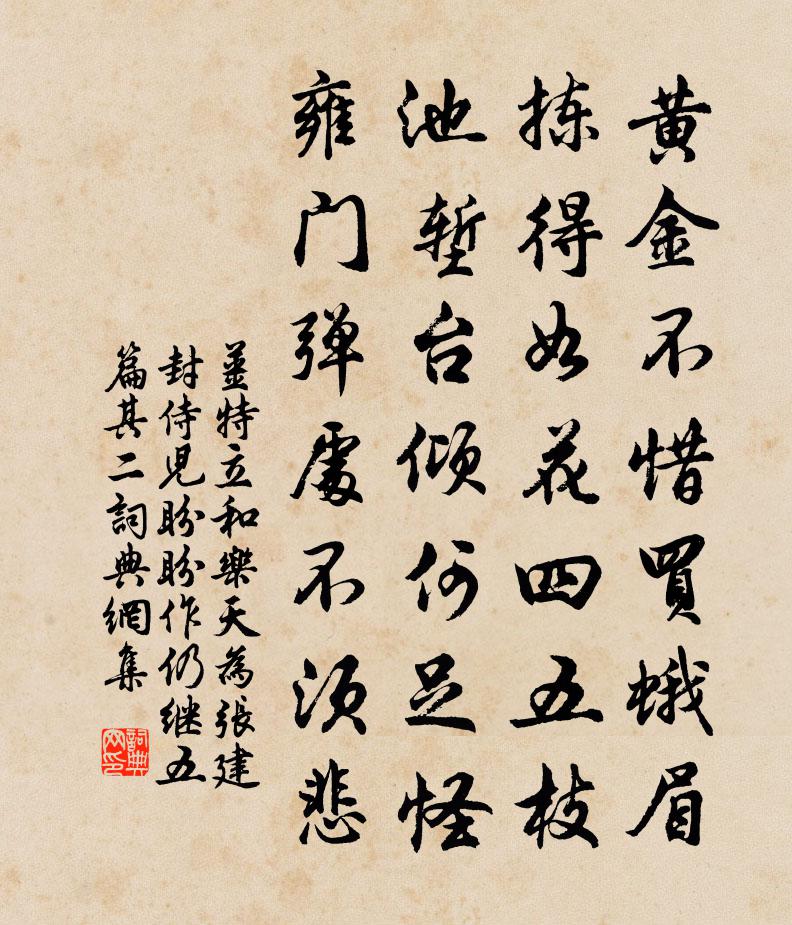 黄金不惜買蛾眉
拣得如花四五枝
池堑台倾何足怪
雍门弹處不须悲
姜特立和樂天為張建
封侍児盼盼作仍继五
篇其二詞典網集
詞典网印